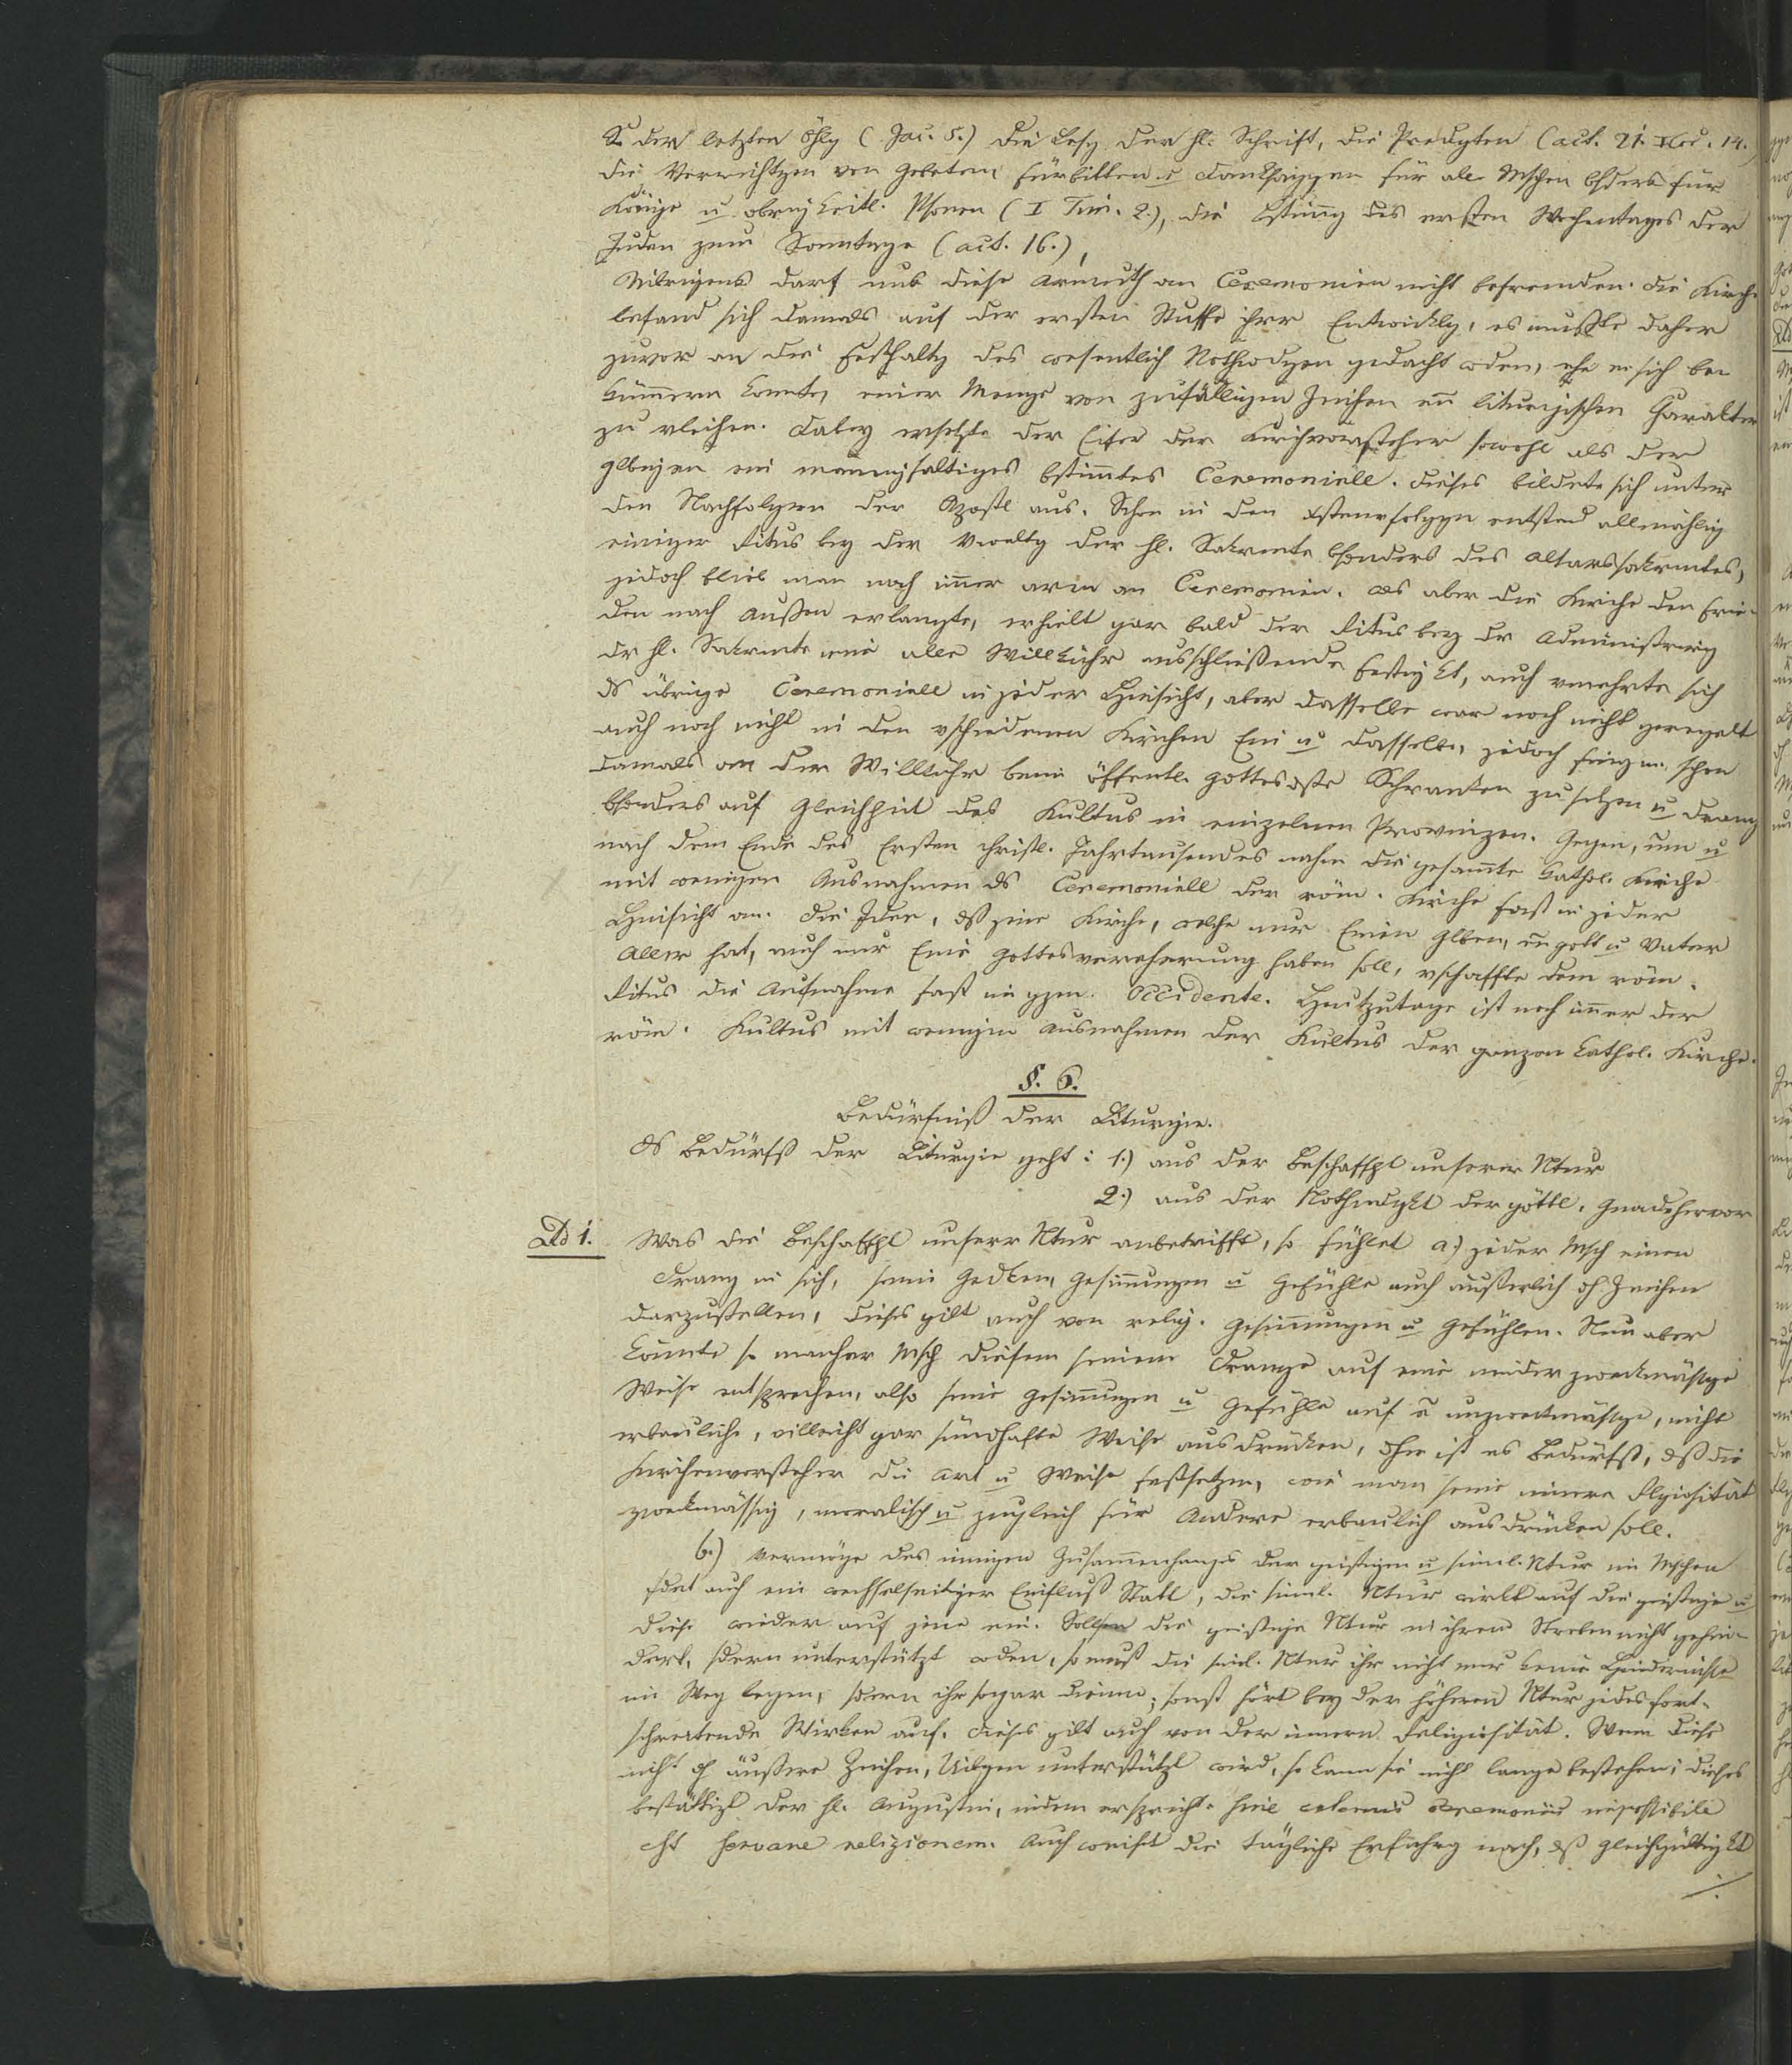 der letzten Öhlg (Jac. 5.) die Lesg der hl. Schrift, die Predigten (act. 21. 14.)
die Verrichtgen von Gebeten, Fürbitten u Danksaggen für alle Mschen bsders für
Könige u obrigkeitl. Psonen (I Tim. 2.), die Bstimg des ersten Wochentages der
Juden zum Sonntage (act. 16.),
Uibrigens darf uns diese Armuth an Ceremonien nicht befremden. Die Kirche
befand sich damals auf der ersten Stuffe ihrer Entwicklg, es mußte daher
zuvor an die Festhaltg des wesentlich Nothwdgen gedacht wden, ehe er sich be-
kümmern konnte, einer Menge von zufälligen Zeichen enn liturgischen Charakter
zu vleihen. Dabey ersetzte der Eifer der Kirchvorsteher sowohl als der
Glbigen ein mannigfaltiges bstimtes Ceremoniell. Dieses bildete sich unter
den Nachfolgern der Apostl aus. Schon in den xstenvfolggn entstand allmählig
einiger Ritus bey der Vwaltg der hl. Sakrmente bsonders des Altarssakrmtes,
jedoch blieb man noch imer arm an Ceremonien. Als aber die Kirche den Frie-
den nach Außen erlangte, erhielt gar bald der Ritus bey der Administrirg
dr hl. Sakrmte eine alle Willkühr ausschließende Festigkt, auch vmehrte sich
ds übrige Ceremoniell in jeder Hinsicht, aber dasselbe war noch nicht geregelt
auch noch nicht in den vschiedenen Kirchen Ein u dasselbe, jedoch fing m. schon
damals an der Willkühr beim öffentl. Gottesdste Schranken zu setzen u drang
bsonders auf Gleichheit des Kultus in einzelnen Provinzen. Gegen, um u
nach dem Ende des Ersten christl. Jahrtausendes nahm die gesamte kathol. Kirche
mit wenigen Ausnahmen ds Ceremoniell der röm. Kirche fast in jeder
Hinsicht an. Die Idee, dß jene Kirche, welche nur Einen Glben, en Gott u Vater
Aller hat, auch nur Eine Gottesverehrung haben soll, vschaffte dem röm.
Ritus die Aufnahme fast im gzen. Occidente. Heutzutage ist noch imer der
röm. Kultus mit wenigen Ausnahmen der Kultus der ganzen kathol. Kirche.
§. 6.
Bedürfniß der Liturgie.
Ds Bedürfß der Liturgie geht: 1.) aus der Beschaffht unserer Ntur
2.) aus der Nothwdgkt der göttl. Gnade hervor
Ad 1. Was die Beschaffht unserer Ntur anbetrifft, so fühlet a.) jeder Msch einen
Drang in sich, seine Gedken, Gesinnungen u Gefühle auch äußerlich dch Zeichen
darzustellen, dieses gilt auch von relig. Gesinnungen u Gefühlen. Nun aber
könnte so mancher Msch diesem seinem Drange auf eine minder zweckmäßige
Weise entsprechen, also seine Gesinnungen u Gefühle auf e unzweckmäßige, nicht
erbauliche, villeicht gar sündhafte Weise ausdrücken, dhr ist es Bedürfß, dß die
Kirchenvorsteher die Art u Weise festsetzen, wie man seine innere Rlgiosität
zweckmässig, moralisch u zugleich für Andere erbaulich ausdrücken soll.
b.) Vermöge des innigen Zusammenhanges der geistigen u sinnl. Ntur im Mschen
fdet auch ein wechselseitiger Einfluß Statt, die sinnl. Ntur wirkt auf die geistige u
diese wieder auf jene ein. Soll die geistige Ntur in ihrem Streben nicht gehin-
dert, sdern unterstützt wden, so muß die sinl. Ntur ihr nicht nur keine Hindernisse
im Weg legen, sdern ihr sogar dienen, sonst hört bey der höheren Ntur jedes fort-
schreitende Wirken auf. Dieses gilt auch von der innern Religiosität. Wenn diese
nicht dch äußere Zeichen, Uibgen unterstützt wird, so kann sie nicht lange bestehen; dieses
bestättigt der hl. Augustin, indem er spricht: sine externis ceremoniis impossibile
est servare religionem. Auch weiset die tägliche Erfahrg nach, dß Gleichgültigkt
./.